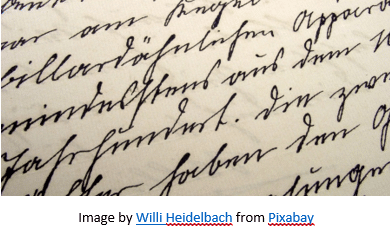 am Kegel
billardähnlichen Appara
mindestens aus dem
Jahrhundert. Die zwe
haben den
Image by Willi Heidelbach from Pixabay